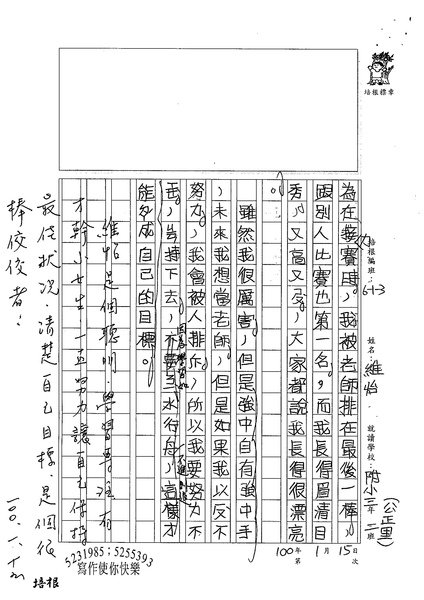 培根標章
培根編班：6-1-3
姓名：維怡
就讀學校：附小三年二班
(公正里)
100年1月15日
第 次
為在接賽時，我被老師排在最後一棒，
跟別人比賽也第一名。而我長得眉清目
秀，又高又
大家都說我長得很漂亮
。
雖然我很厲害，但是強中自有強中手
，未來我想當老師，但是如果我以反不
努力，我會被人排
所以我要努力不
下去，
水行舟，
這樣才
能夠成自己的目標。
維怡是個聰明、學習
有
才幹小女生，一
努力讓自己保持
最佳狀況，清楚自己目標，是個很
棒佼佼者！
100.1.
5231985；5255393
寫作使你快樂
培根